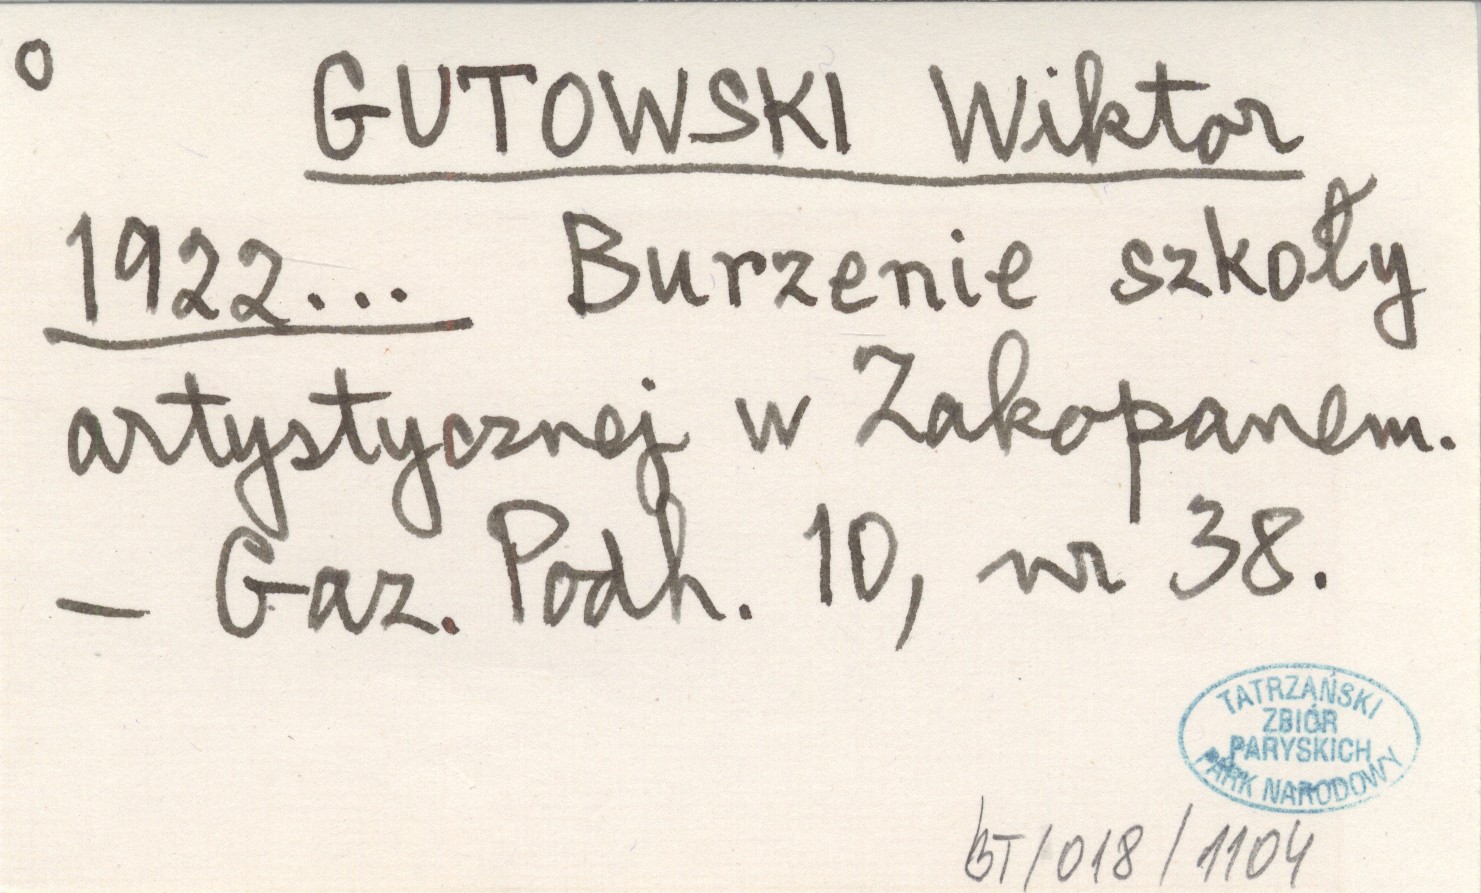 o
GUTOWSKI Wiktor
1922... Burzenie szkoły
artystycznej w Zakopanem.
— Gaz. Podh. 10, nr 38.
TATRZAŃSKI
ZBIÓR
PARYSKICH
PARK NARODOWY
BT/018/1104